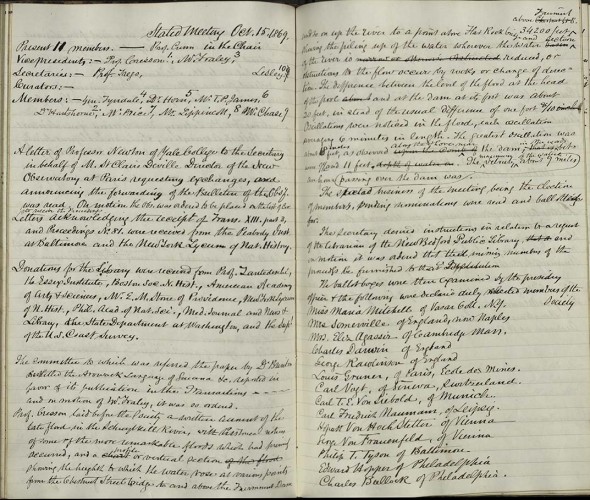 Stated Meeting Oct. 15, 1869.
Present 11 members.
in the Chair
Vice presidents: Prof. Cresson, Mr. Fraley,
Secretaries: Prof. Trego, Lesley
Curators:
Members: Gen. Tyndale, Dr. Horn, Mr. T. P. James,
Mr. Price, Mr. Lippincott, Mr. Chase
A letter of Professor Newton of Yale College to the Secretary
in behalf of M. St Claire Deville Director of the New
Observatory at Paris requesting exchanges, and
announcing the forwarding of the Bulletin of the Obs.
was read. On motion the Obs. was ordered to be placed on the list of
to receive the Proceedings
Letters acknowledging the receipt of Trans. XIII. part 3,
and Proceedings No. 81. were received from the Peabody Inst.
at Baltimore and the New York Lyceum of Nat. History.
Donations for the Library were received from Prof. Zantedeschi,
the Essex Institute, Boston Soc. N. Hist., American Academy
of Arts & Sciences, Mr. E. M. Stone of Providence, New York Lyceum
of N. Hist., Phil. Acad. of Nat. Sci., Med. Journal and News &
Library, the State Department at Washington, and the Supt.
of the U.S. Coast Survey.
The Committee to which was referred the paper by Dr. Brinton
on the Arawack Language of Guiana &c. reported in
favor of its publication in the Transactions
and on motion of Mr. Fraley, it was so ordered.
Prof. Cresson laid before the Society a written account of the
late flood in the Schuylkill River, with
of some of the more remarkable floods which had
occurred, and a vertical section of the flood
showing the height to which the water rose at various points
from the Chestnut Street Bridge to and above the Fairmount Dam
Fairmount
above
and so up the river to a point above Flat Rock 34200 feet
showing the piling up of the water wherever the water and section
of the river is reduced, or
obstructions to the flow occurs by rocks or change of direc-
tion. The difference between the level of the flood at the head
of the pool and at the dam at its foot was about
20 feet, instead of the usual difference of one foot
Oscillations were noticed in the flood, each oscillation
averaging 6 minutes in length. The greatest oscillation was
about feet, as observed the dam.
of flood 11 feet. The velocity, about 9 miles
an hour passing over the dam was
The special business of the meeting being the election
of members, pending nominations were read and balloted
for.
The Secretary desired instructions in relation to a request
of the Librarian of the New Bedford Public Library
on motion it was ordered that the missing numbers of the
proceeds. be furnished to that
The ballot boxes were then examined by the presiding
officer & the following were declared duly elected members of the
Society
Miss Maria Mitchell of Vassar Coll. N.Y.
Mrs. Somerville of England, now Naples
Mrs. Eliz. Agassiz of Cambridge Mass.
Charles Darwin of England
George Rawlinson of England
Louis Gruner, of Paris, Ecole des Mines.
Carl Vogt, of Geneva, Switzerland.
Carl T. E. Von Siebold, of Munich.
Carl Friedrich Naumann of Leipsig.
Von Hochstetter of Vienna
Von Frauenfeld, of Vienna
Philip T. Tyson of Baltimore
Edward Hopper of Philadelphia
Charles Bullock of Philadelphia.